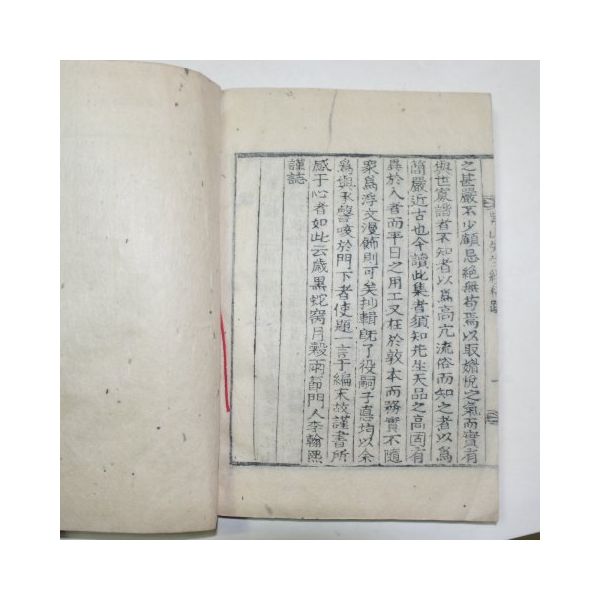 之甚嚴不少顧忌絶無苟焉以取媚悅之氣而實有
與世寡諧者不知者以爲高亢流俗而知之者以爲
簡嚴近古也今讀此集者須知先生天品之高固有
異於人者而平日之用工又在於敦本而務實不隨
衆爲浮文漫飾則可矣抄輯旣了役嗣子悳均以余
爲與承謦咳於門下者使題一言于編末故謹書所
感于心者如此云歲黑蛇窩月穀雨節門人李翰熙
謹誌